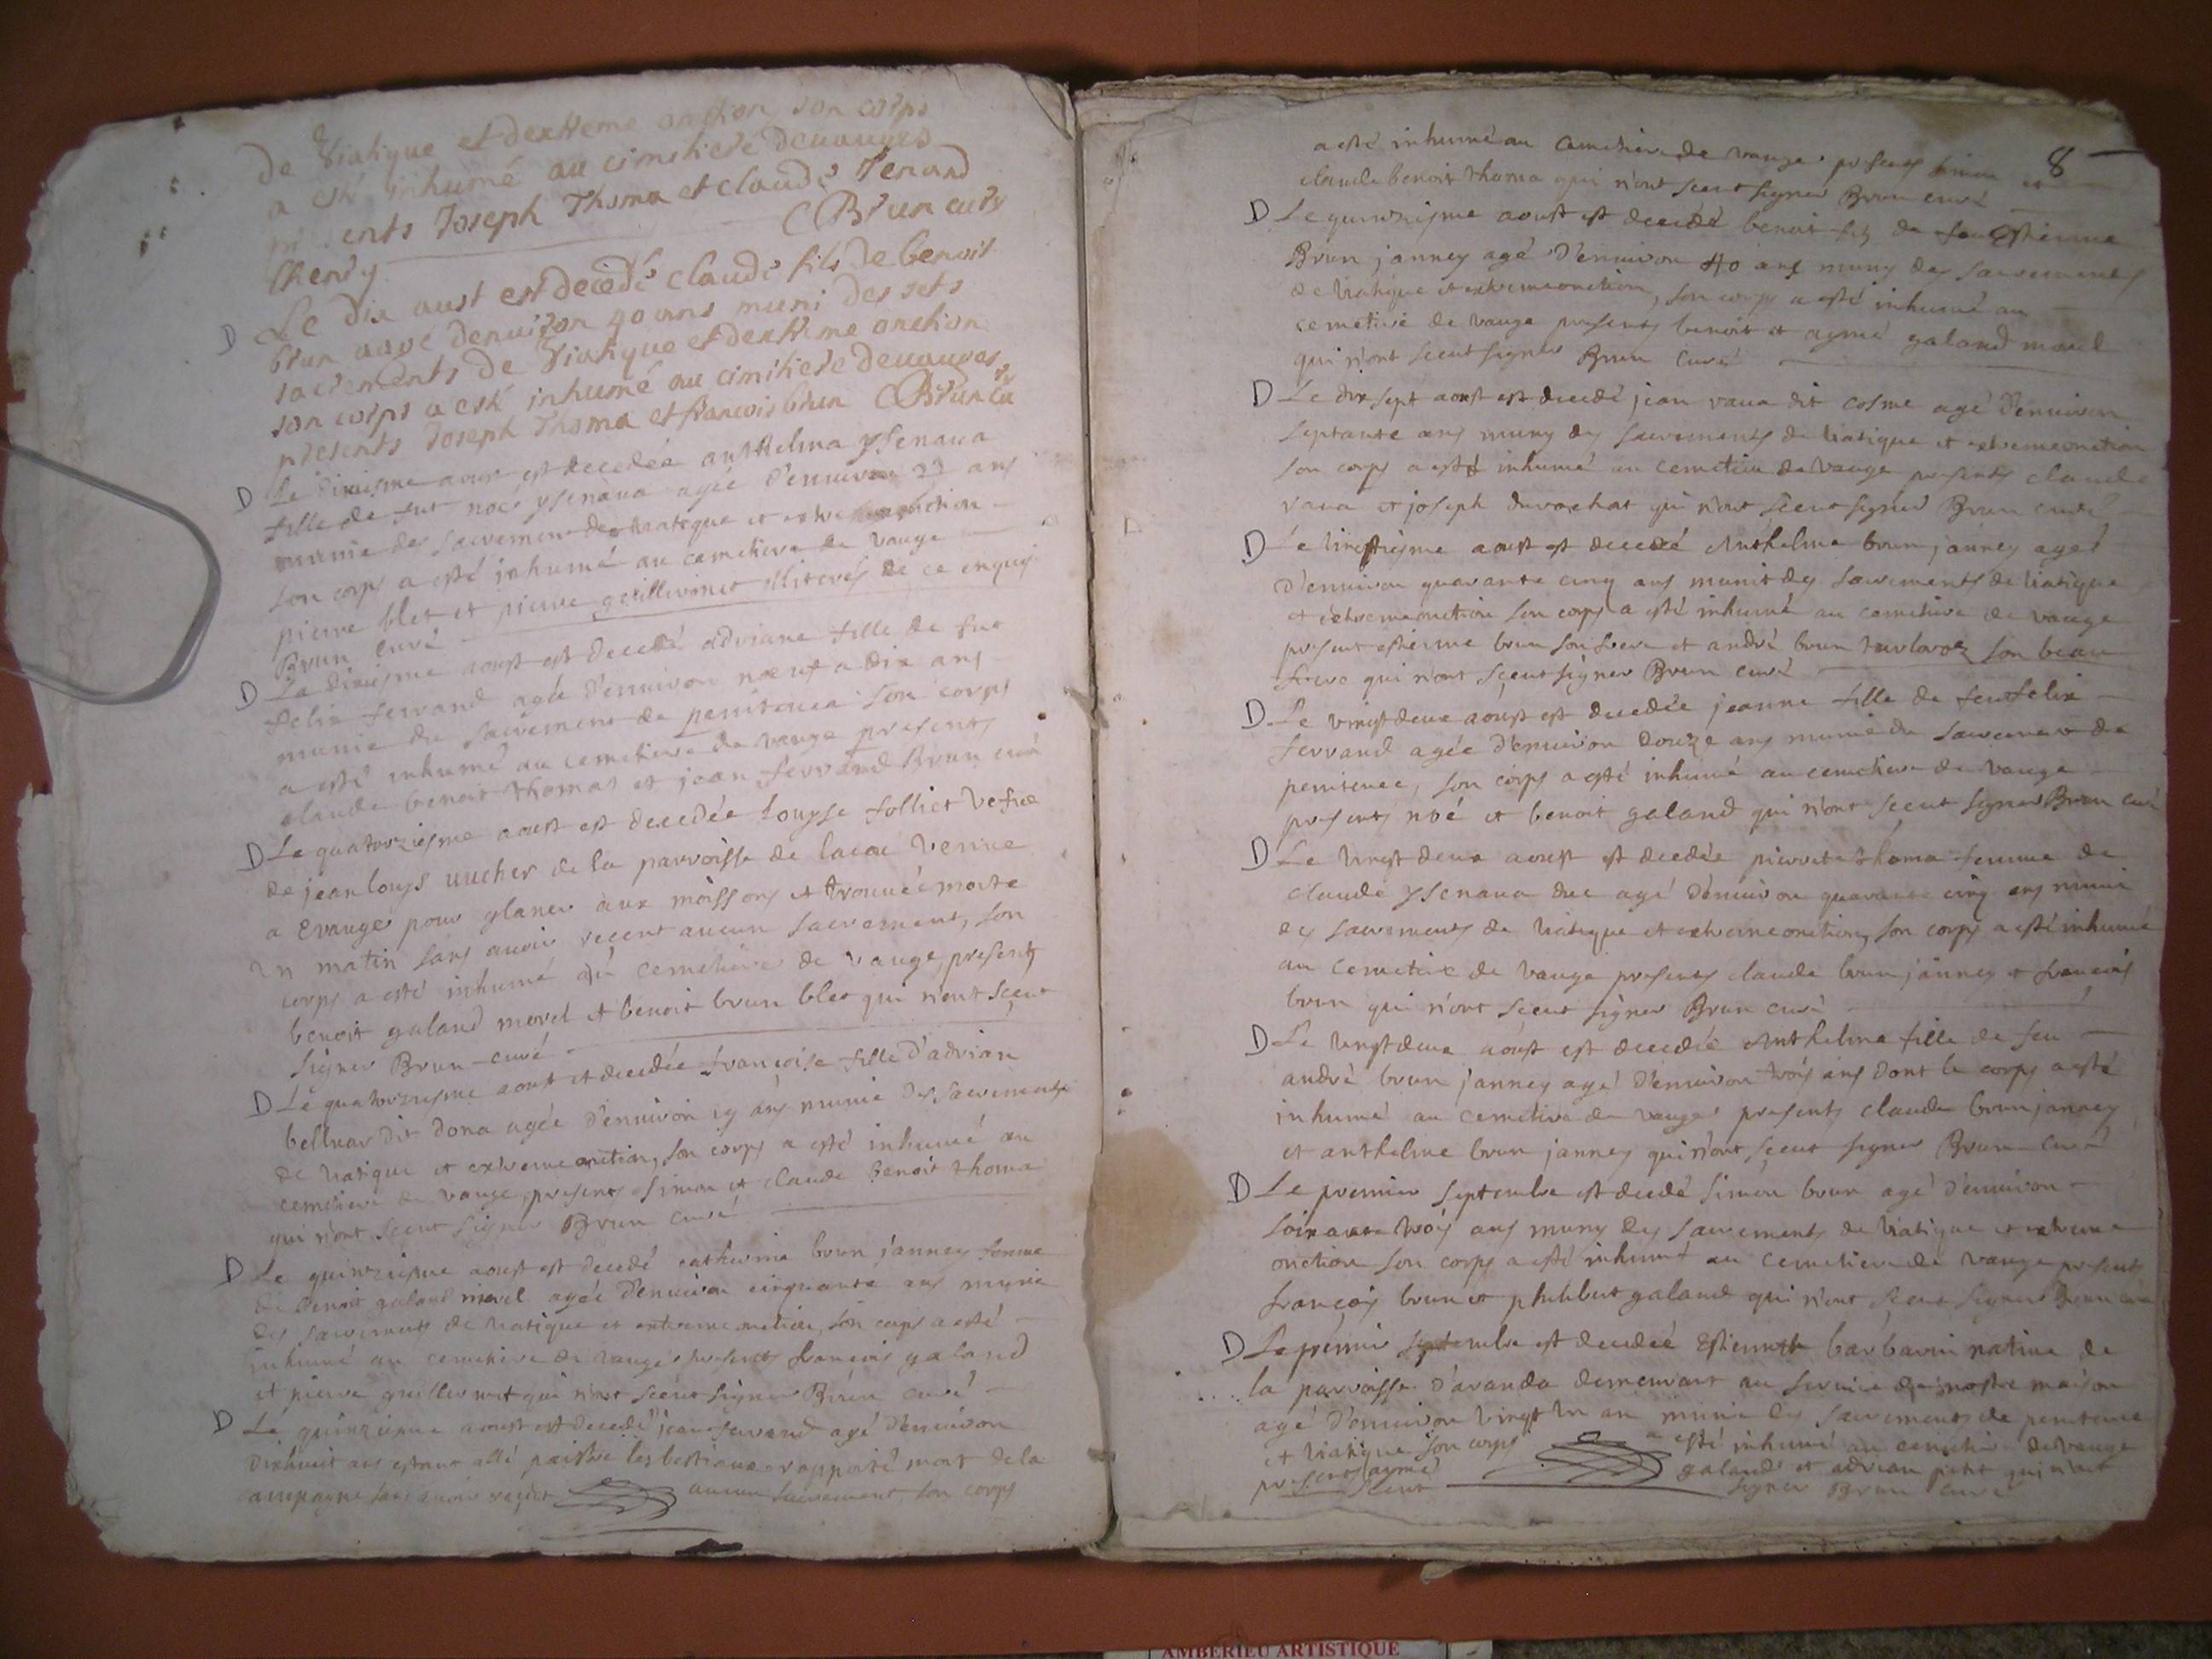 De Viatique et dextreme onction son corps
a esté inhumé au cimetiere devauges
presents Joseph Thoma et claude Tenand
Cheney (Brun curé
D Le dix aust est decedé claude fils de benoit
brun aagé denviron 40 ans muni des sets
sacrements de Viatique et dextreme onction
son corps a esté inhumé au cimitiere devauges
presents Joseph Thoma et francois brun (Brun cu
D Le dixiesme aoust est decedée anthelma ysenava
fille de fut noé ysenava agée d'environ 22 ans
munie des sacremens de viatique et extreme onction
son corps a esté inhumé au cemetiere de vauge
pierre blet et pierre guillermet illiterés de ce enquis
Brun curé
D Le dixiesme aoust est decedé adriane fille de fut
felix ferrand agée d'environ neuf a dix ans
munie du sacrement de penitence son corps
a esté inhumé au cemetiere de vauge presents
claude benoit thomas et jean ferrand Brun curé
D Le quatorziesme aoust est decedée Louyse folliet vefve
de jean louys vucher de la parroisse de venue
a Evauges pour glaner aux moissons et trouvée morte
un matin sans avoir receut aucun sacrement, son
corps a esté inhumé au cemetiere de vauge, presents
benoit galand morel et benoit brun blet qui n'ont sceut
signer Brun curé
D Le quatorziesme aoust et decedée françoise fille d'adrian
belluar dit dona agée d'environ 19 ans munie des sacrements
de viatique et extreme onction, son corps a esté inhumé au
cemetiere de vauge, presents simon et claude benoit thoma
qui n'ont sceut signer Brun curé
D Le quinziesme aoust est decedé catherine brun janney femme
de benoit galand morel agée d'environ cinquante ans munie
des sacrements de viatique et extreme onction, son corps a esté
inhumé au cemetiere de vauge presents francois galand
et pierre guillermet qui n'ont sceut signer Brun curé
D Le quinziesme aoust est decedé jean ferrand agé d'environ
dixhuit ans estant allé paistre les bestiaux rapporté mort de la
campagne sans avoir receut aucun sacrement, son corps
8
a esté inhumé au cemetiere de vauge presents simon et
claude benoit thoma qui n'ont sceut signer Brun curé
D Le quinziesme aoust est decedé benoit fils de feu Estienne
Brun janney agé d'environ 40 ans muny des sacrements
de viatique et extreme onction, son corps a esté inhumé au
cemetiere de vauge presents benoit et aymé galand morel
qui n'ont sceut signer Brun curé
D Le dix sept aoust est decedé jean rava dit cosme agé d'environ
septante ans muny des sacrements de viatique et extreme onction
son corps a esté inhumé au cemetiere de vauge presents claude
rava et joseph durochat qui n'ont sceut signer Brun curé
D Le vingtiesme aoust est decedé Anthelme brun janney agé
d'environ quarante cinq ans munit des sacrements de viatique
et extreme onction son corps a esté inhumé au cemetiere de vauge
present estienne brun son frere et andré brun son beau
frere qui n'ont sceut signer Brun curé
D Le vingt deux aoust est decedée jeanne fille de feu felix
ferrand agée d'environ douze ans munie du sacrement de
penitence, son corps a esté inhumé au cemetiere de vauge
presents noé et benoit galand qui n'ont sceut signer Brun curé
D Le vingt deux aoust est decedée pierrete thoma femme de
claude ysenava duc agé d'environ quarante cinq ans munie
des sacrements de viatique et extreme onction, son corps a esté inhumé
au cemetiere de vauge presents claude brun janney et francois
brun qui n'ont sceut signer Brun curé
D Le vingt deux aoust est decedée Anthelma fille de feu
andré brun janney agé d'environ trois ans dont le corps a esté
inhumé au cemetiere de vauge presents claude brun janney
et anthelme brun janney qui n'ont sceut signer Brun curé
D Le premier septembre est decedé simon brun agé d'environ
soixante trois ans muny des sacrements de viatique et extreme
onction son corps a esté inhumé au cemetiere de vauge presents
françois brun et philibert galand qui n'ont sceut signer Brun curé
D Le premier septembre est decedée Estiennette barbarin native de
la parroisse d'aranda demeurant au service de nostre maison
agé d'environ vingt un an munie des sacrements de penitence
et viatique son corps a esté inhumé au cemetiere de vauge
presents aymé galand et adrian petit qui n'ont
sceut signer Brun curé
AMBERIEU ARTISTIQUE